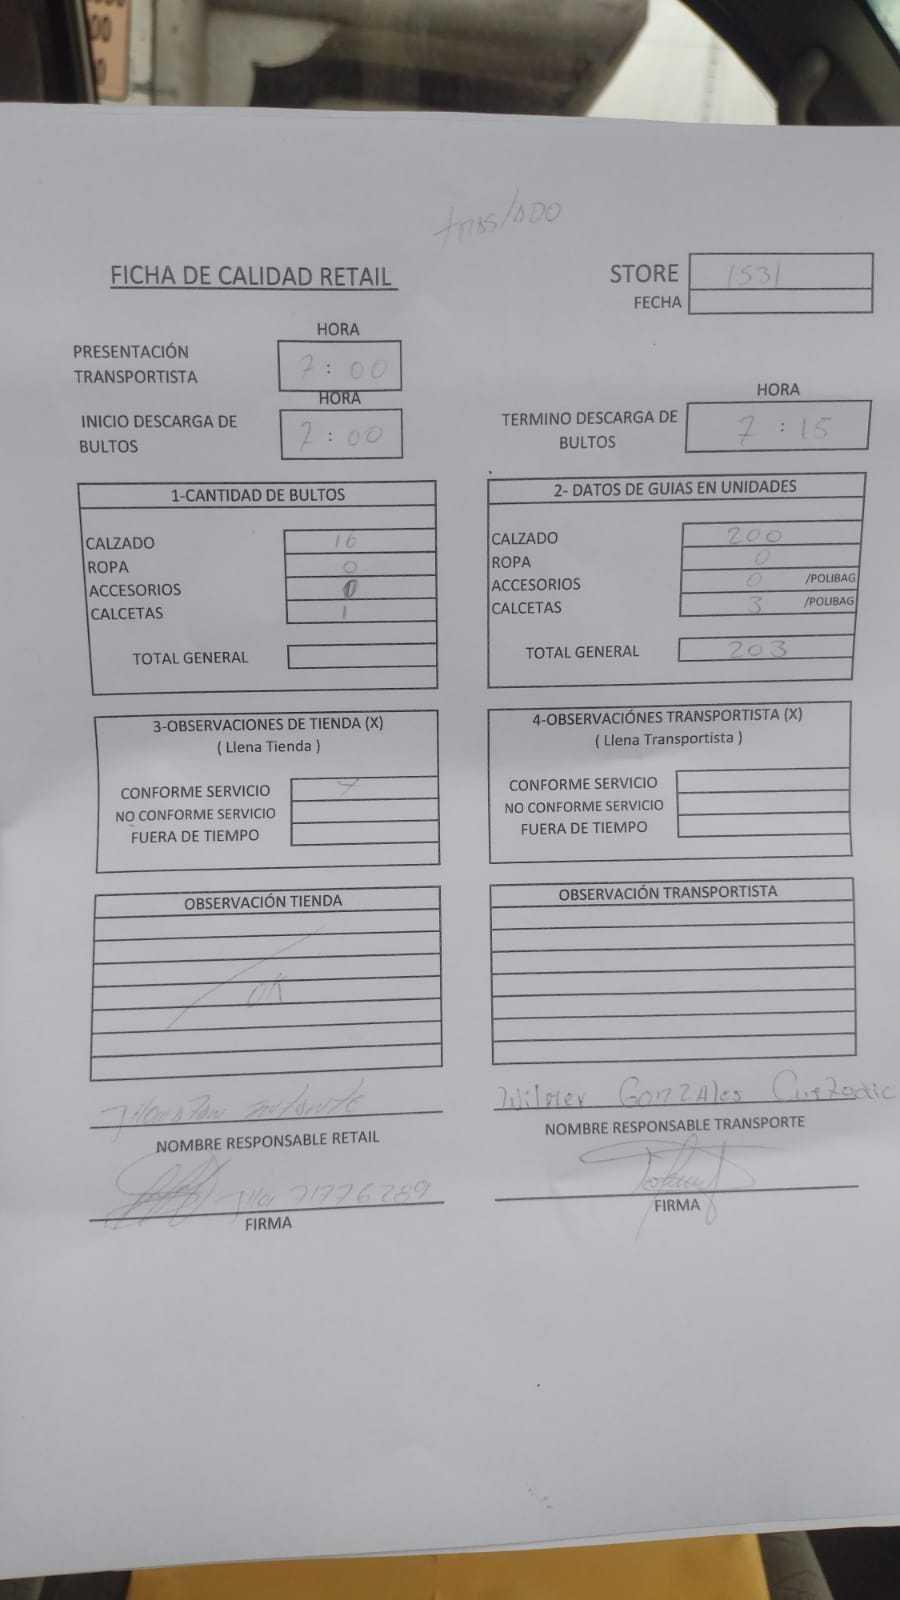 trasladO
FICHA DE CALIDAD RETAIL
STORE 1531
FECHA
HORA
PRESENTACIÓN TRANSPORTISTA 7:00
HORA
INICIO DESCARGA DE BULTOS 7:00
HORA
TERMINO DESCARGA DE BULTOS 7:15
1-CANTIDAD DE BULTOS
CALZADO 16
ROPA 0
ACCESORIOS
CALCETAS 1
TOTAL GENERAL
2- DATOS DE GUIAS EN UNIDADES
CALZADO 200
ROPA 0
ACCESORIOS 0 /POLIBAG
CALCETAS 3 /POLIBAG
TOTAL GENERAL 203
3-OBSERVACIONES DE TIENDA (X)
( Llena Tienda )
CONFORME SERVICIO
NO CONFORME SERVICIO
FUERA DE TIEMPO
4-OBSERVACIÓNES TRANSPORTISTA (X)
( Llena Transportista )
CONFORME SERVICIO
NO CONFORME SERVICIO
FUERA DE TIEMPO
OBSERVACIÓN TIENDA
OK
OBSERVACIÓN TRANSPORTISTA
NOMBRE RESPONSABLE RETAIL
71776289
FIRMA
Wilmer GONZALes Custodio
NOMBRE RESPONSABLE TRANSPORTE
FIRMA